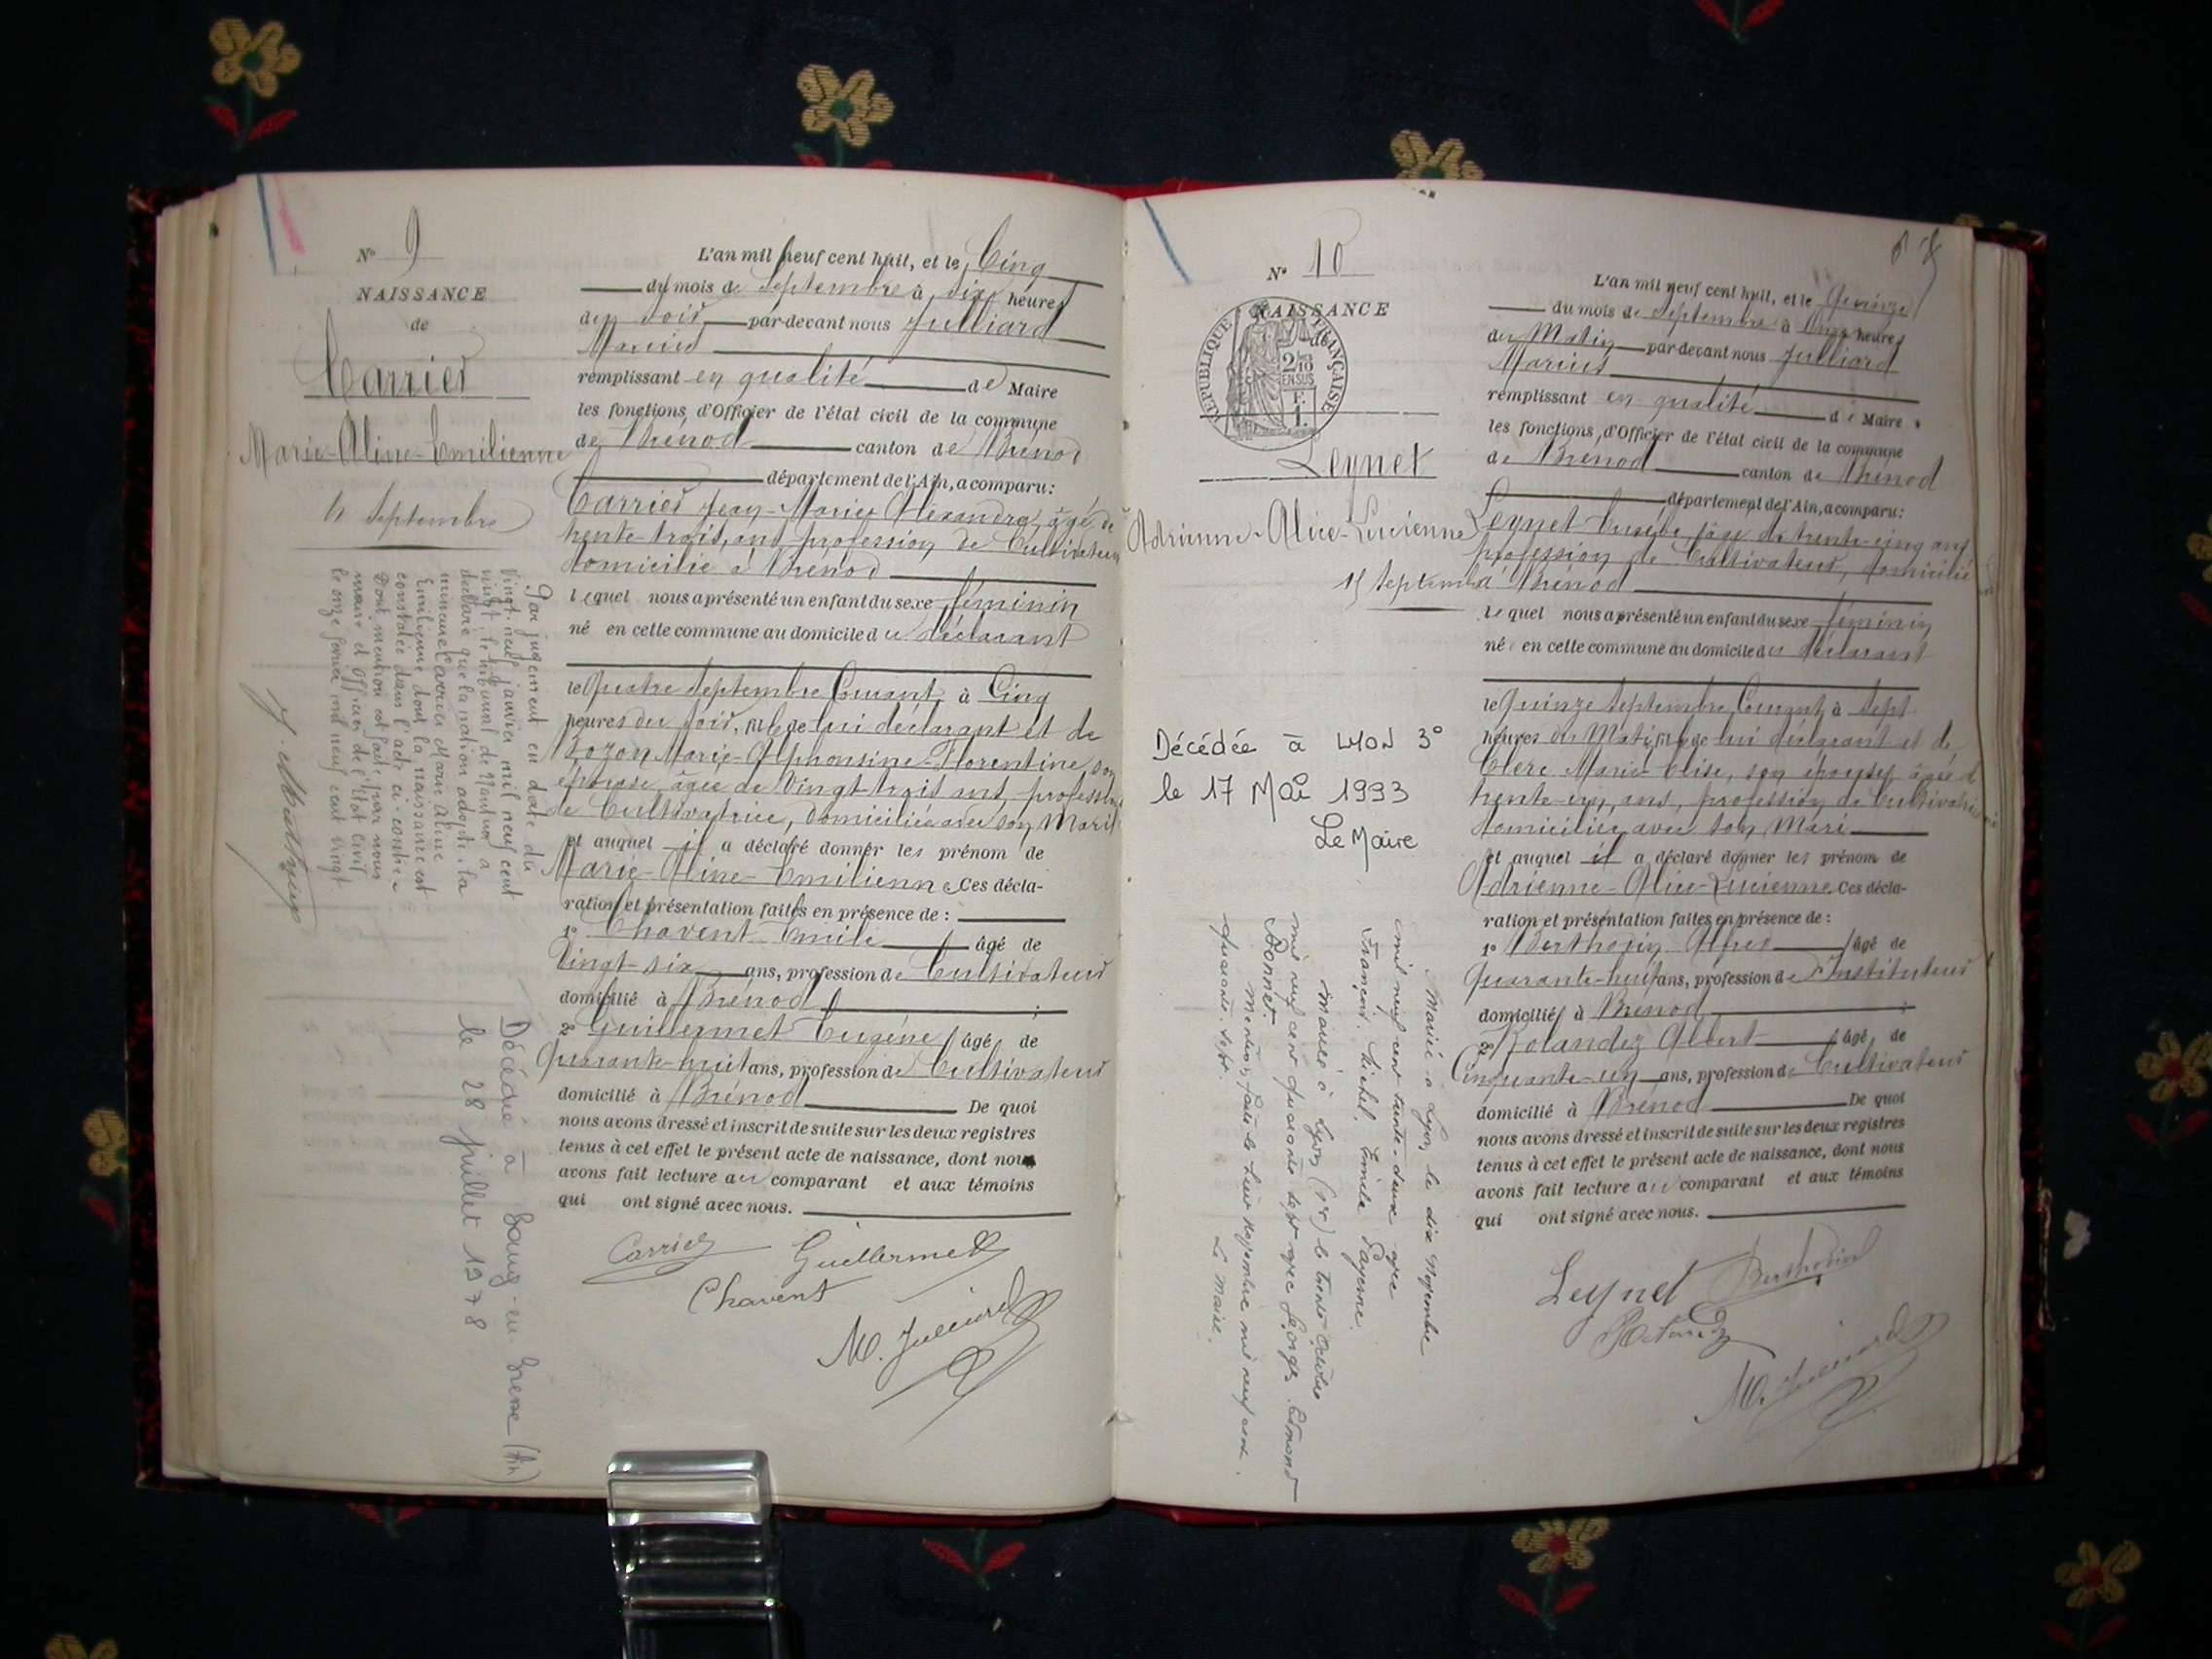 N° 9
NAISSANCE
de
Carrier
Marie-Aline-Emilienne
4 Septembre
Par jugement en date du
vingt-neuf janvier mil neuf cent
vingt, le tribunal de Nantua a
déclaré que la nation adopte la
mineure Carrier Marie Aline
Emilienne dont la naissance est
constatée dans l'acte ci-contre
Dont mention est faite par nous
maire et officier de l'état civil
le onze février mil neuf cent vingt
Décédée à Bourg-en-Bresse (Ain)
le 28 juillet 1978
L'an mil neuf cent huit, et le Cinq
du mois de Septembre à dix heures
du soir par-devant nous Julliard
Marius
remplissant en qualité de Maire
les fonctions d'Officier de l'état civil de la commune
de Brénod canton de Brénod
département de l'Ain, a comparu:
Carrier Jean-Marie Alexandre, âgé de
trente-trois, ans profession de Cultivateur
domicilié à Brénod
lequel nous a présenté un enfant du sexe féminin
né en cette commune au domicile du déclarant
le Quatre Septembre Courant, à Cinq
heures du soir, fille de lui déclarant et de
Bozon Marie-Alphonsine-Florentine son
épouse, âgée de Vingt-trois ans, profession
de Cultivatrice, domiciliée avec son Mari
et auquel il a déclaré donner les prénom de
Marie-Aline-Emilienne Ces décla-
ration et présentation faites en présence de :
1° Chavent Emile âgé de
Vingt-six ans, profession de Cultivateur
domicilié à Brénod ;
2° Guillermet Eugène âgé de
Quarante-huit ans, profession de Cultivateur
domicilié à Brénod De quoi
nous avons dressé et inscrit de suite sur les deux registres
tenus à cet effet le présent acte de naissance, dont nous
avons fait lecture au comparant et aux témoins
qui ont signé avec nous.
Carrier Guillermet
Chavent
M. Julliard
N° 10
NAISSANCE
RÉPUBLIQUE FRANÇAISE
2/10
EN SUS
F.
1.
Leynet
Adrienne-Alice-Lucienne
15 Septembre
Décédée à LYON 3°
le 17 Mai 1993
Le Maire
Mariée à Lyon le dix Novembre
mil neuf cent trente-deux avec
François. Michel. Emile Payerne.
Mariée à Lyon le trente Octobre
mil neuf cent quarante sept avec Georges Edmond
Bonnet.
Mention faite le huit Novembre mil neuf cent
quarante. sept.
Le Maire.
L'an mil neuf cent huit, et le Quinze
du mois de Septembre à Onze heures
du Matin par-devant nous Julliard
Marius
remplissant en qualité de Maire
les fonctions d'Officier de l'état civil de la commune
de Brénod canton de Brénod
département de l'Ain, a comparu:
Leynet Eusèbe, âgé de trente-cinq ans
profession de Cultivateur, domicilié
à Brénod
lequel nous a présenté un enfant du sexe féminin
né en cette commune au domicile du déclarant
le Quinze Septembre Courant, à Sept
heures du Matin, fille de lui déclarant et de
Clerc Marie-Elise, son épouse, âgée de
trente-un, ans, profession de Cultivatrice
domiciliée avec son Mari
et auquel il a déclaré donner les prénom de
Adrienne-Alice-Lucienne Ces décla-
ration et présentation faites en présence de :
1° Alfred âgé de
Quarante-huit ans, profession de Instituteur
domicilié à Brénod ;
2° Rolandez Albert âgé de
Cinquante-un ans, profession de Cultivateur
domicilié à Brénod De quoi
nous avons dressé et inscrit de suite sur les deux registres
tenus à cet effet le présent acte de naissance, dont nous
avons fait lecture au comparant et aux témoins
qui ont signé avec nous.
Leynet
Rolandez
M. Julliard